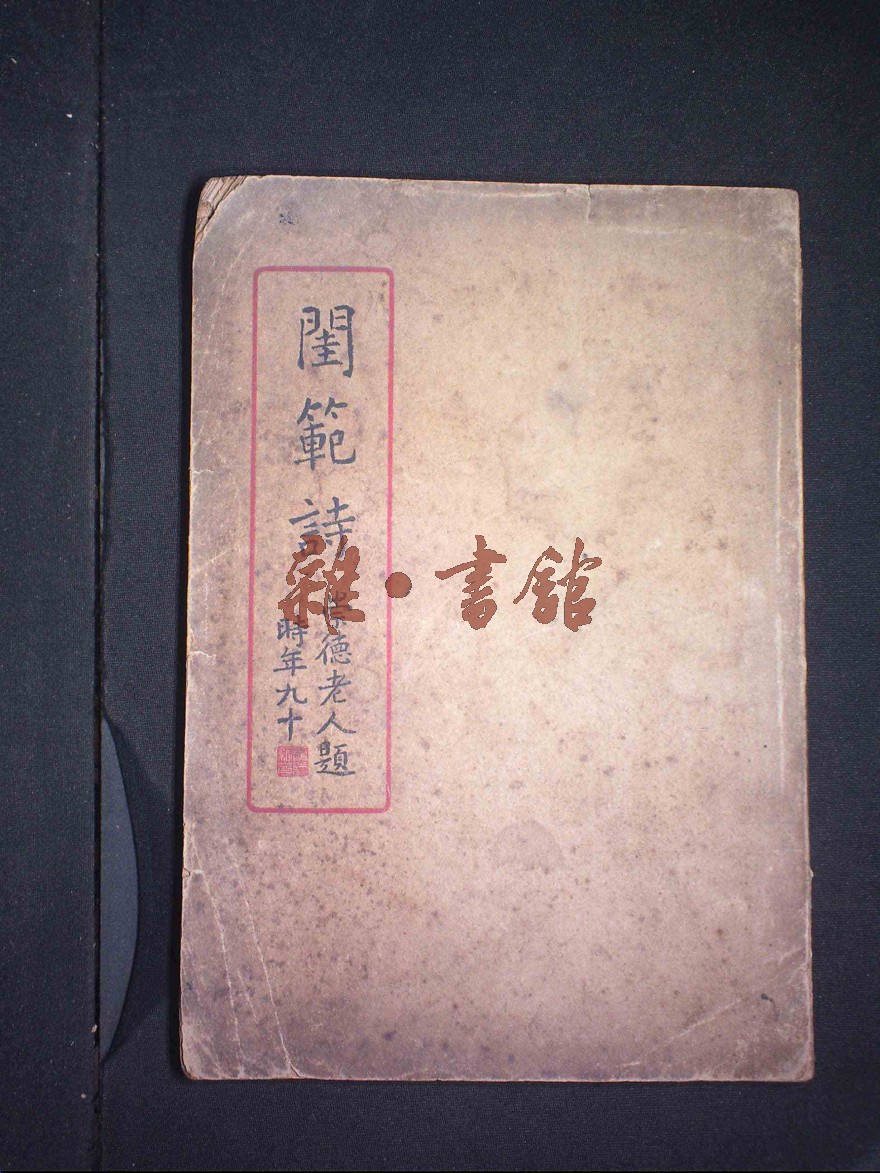 閨範詩
崇德老人題
時年九十
雜·書館